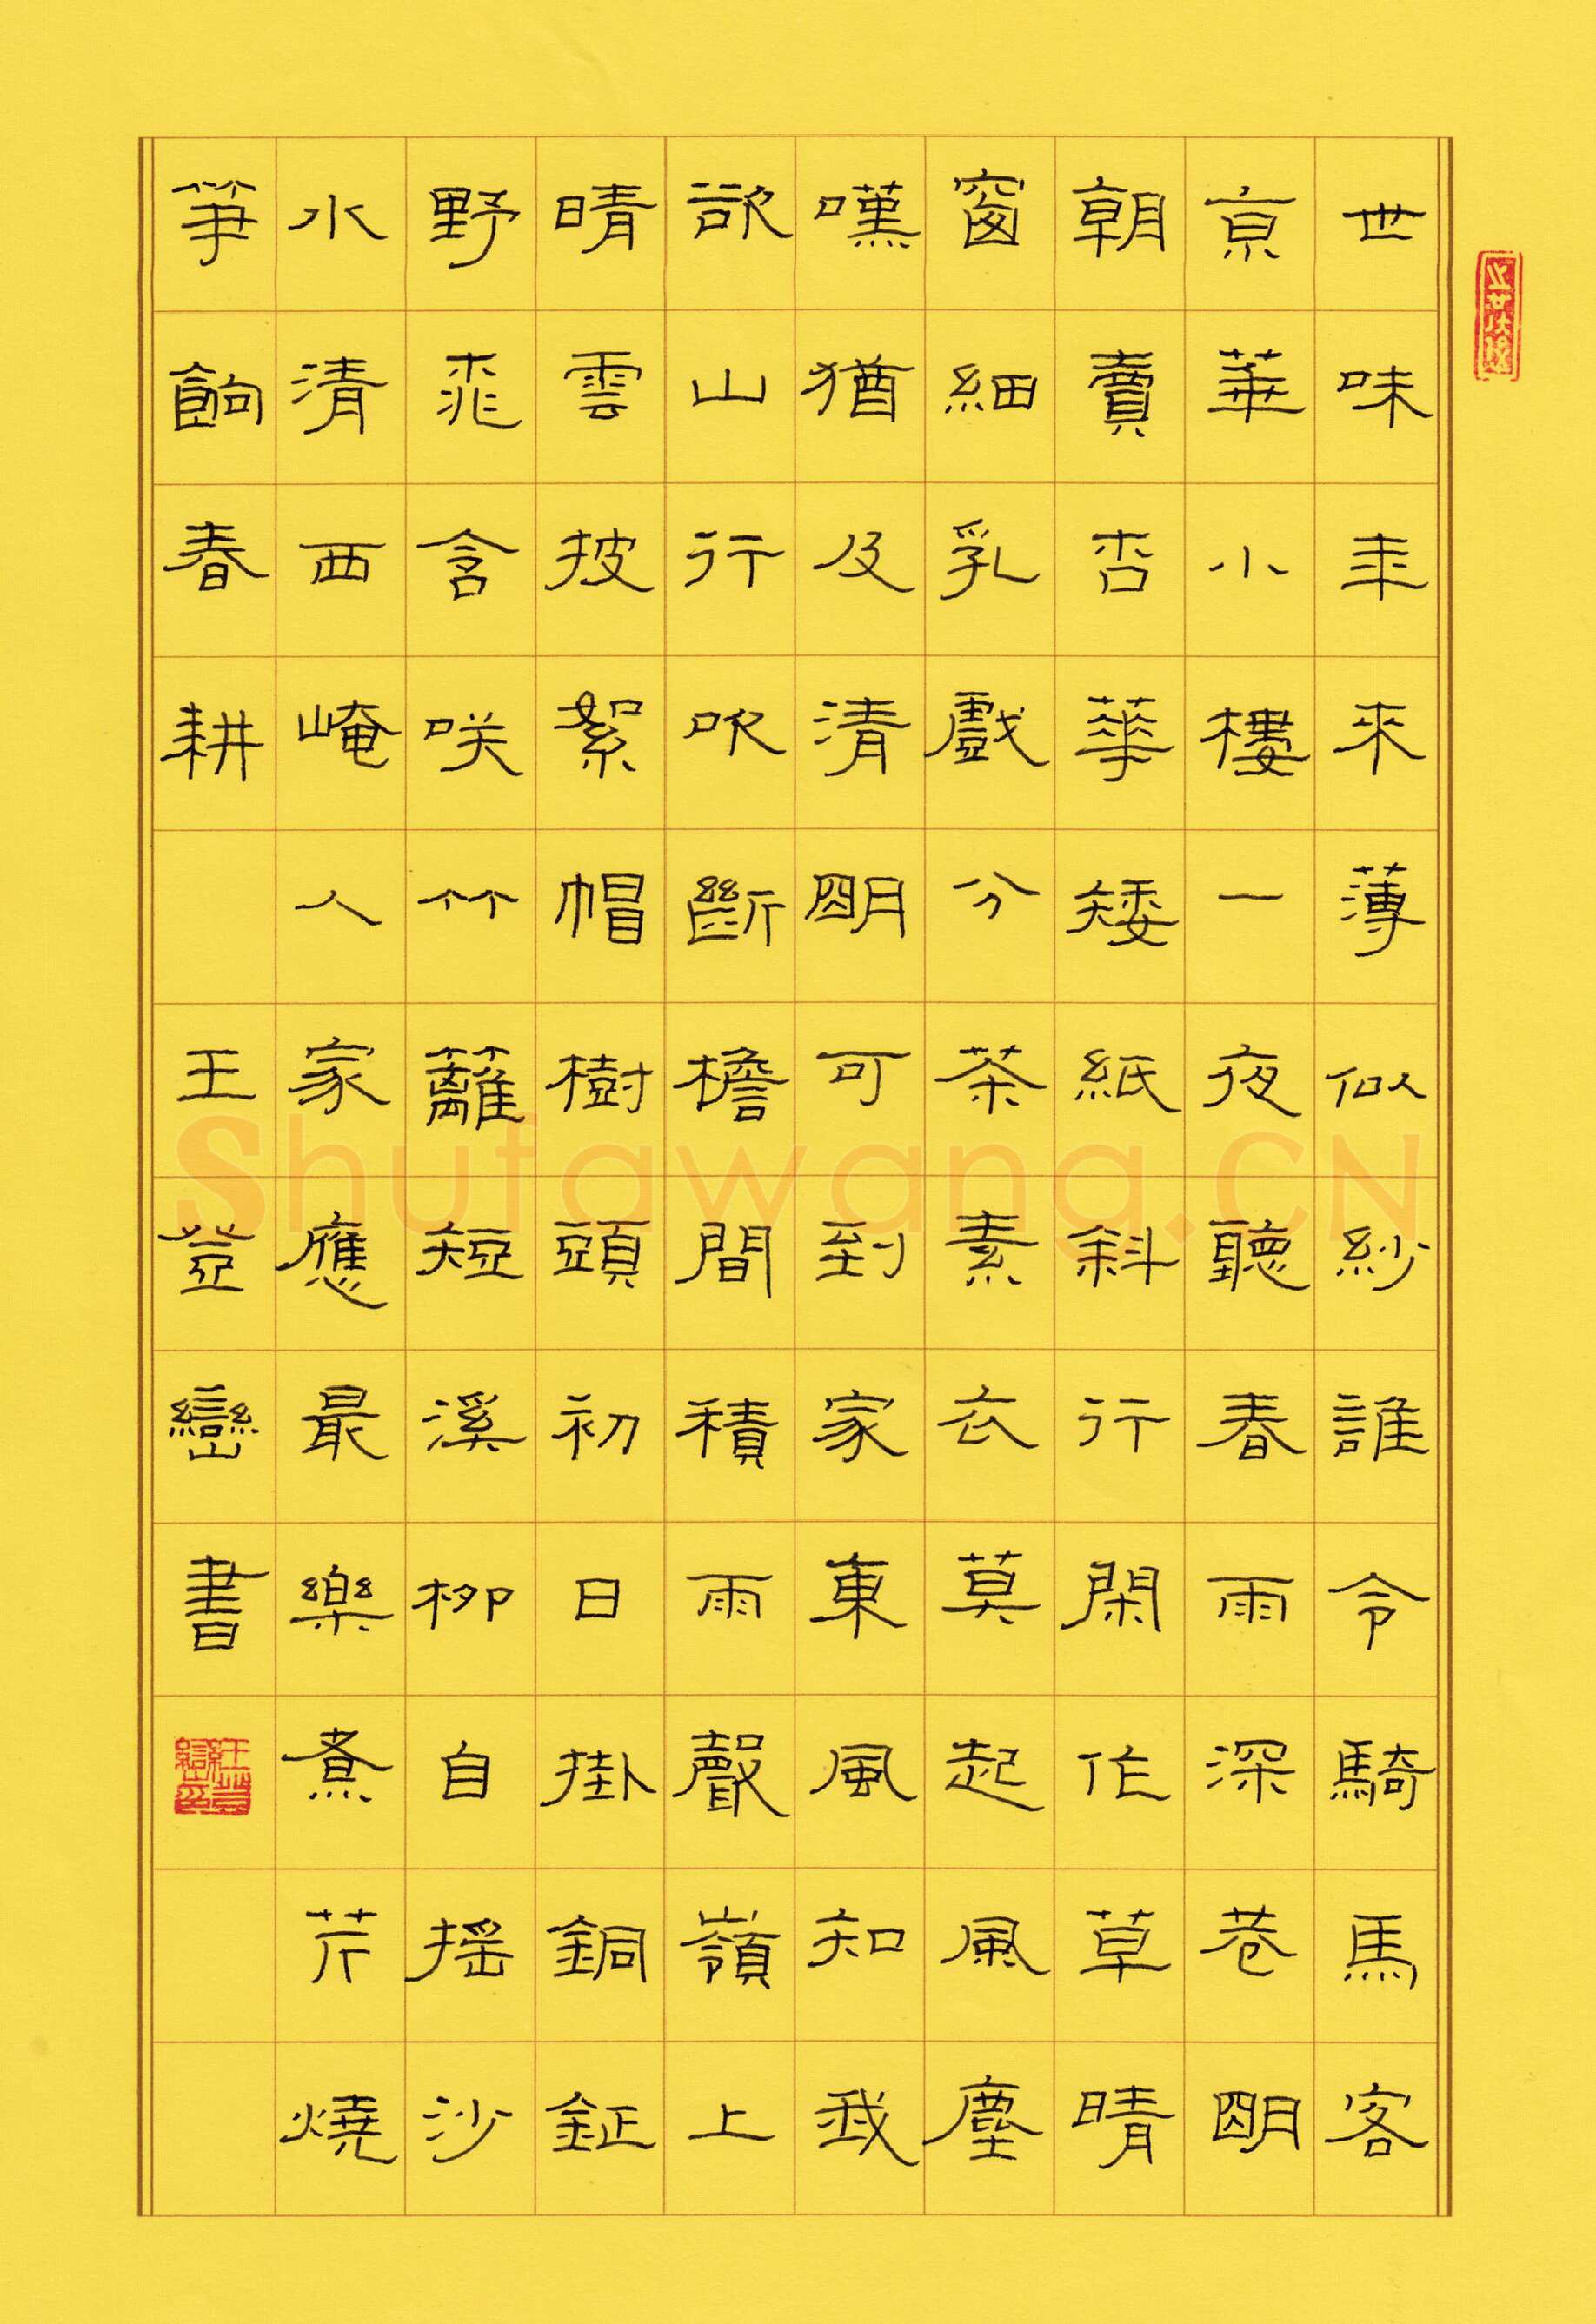 世味年來薄似紗誰令騎馬客
京華小樓一夜聽春雨深巷明
朝賣杏華矮紙斜行閑作草晴
窗細乳戲分茶素衣莫起風塵
嘆猶及清明可到家東風知我
欲山行吹斷檐間積雨聲嶺上
晴雲披絮帽樹頭初日掛銅鉦
野桃含咲竹籬短溪柳自搖沙
水清西崦人家應最樂煮芹燒
笋餉春耕 王登巒書
Shufawang.CN